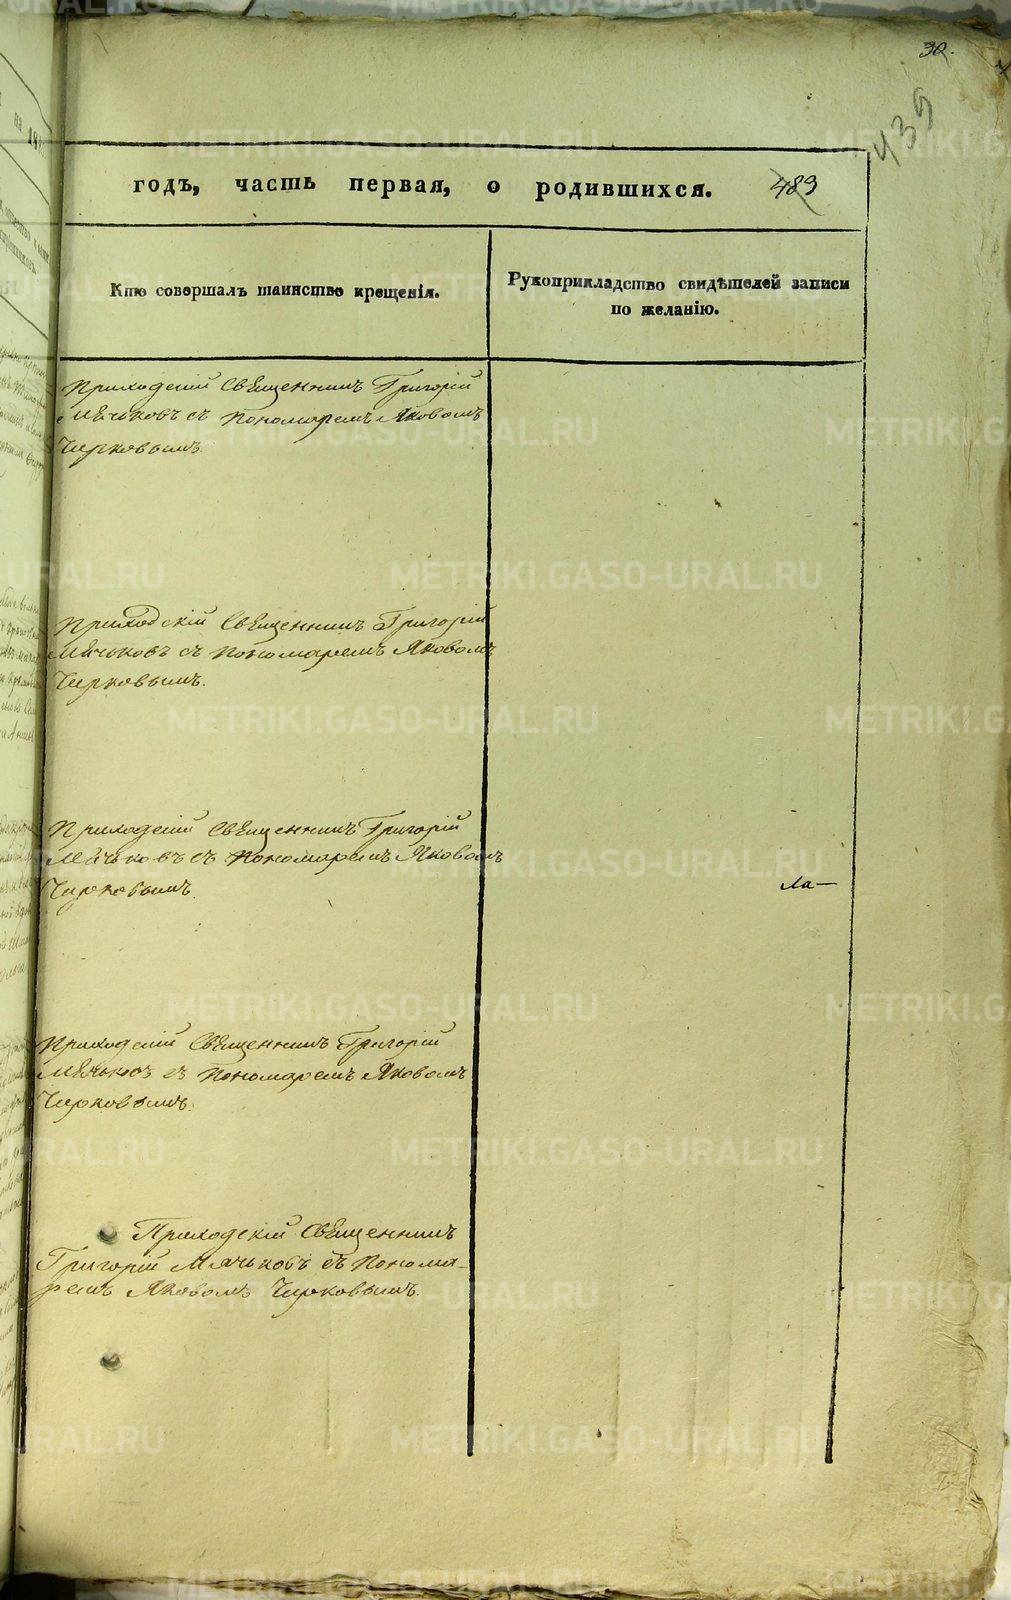 30.
439
годъ, часть первая, о родившихся. 483
Кто совершалъ таинство крещенія.
Рукоприкладство свидѣтелей записи
по желанію.
Приходскій Священникъ Григорій
Мячьковъ съ Пономаремъ Яковомъ
Чирковымъ.
Приходскій Священникъ Григорій
Мячьковъ съ Пономаремъ Яковомъ
Чирковымъ.
Приходскій Священникъ Григорій
Мячьковъ съ Пономаремъ Яковомъ
Чирковымъ.
ла—
Приходскій Священникъ Григорій
Мячьковъ съ Пономаремъ Яковомъ
Чирковымъ.
Приходскій Священникъ
Григорій Мячьковъ съ Понома-
ремъ Яковомъ Чирковымъ.
METRIKI.GASO-URAL.RU